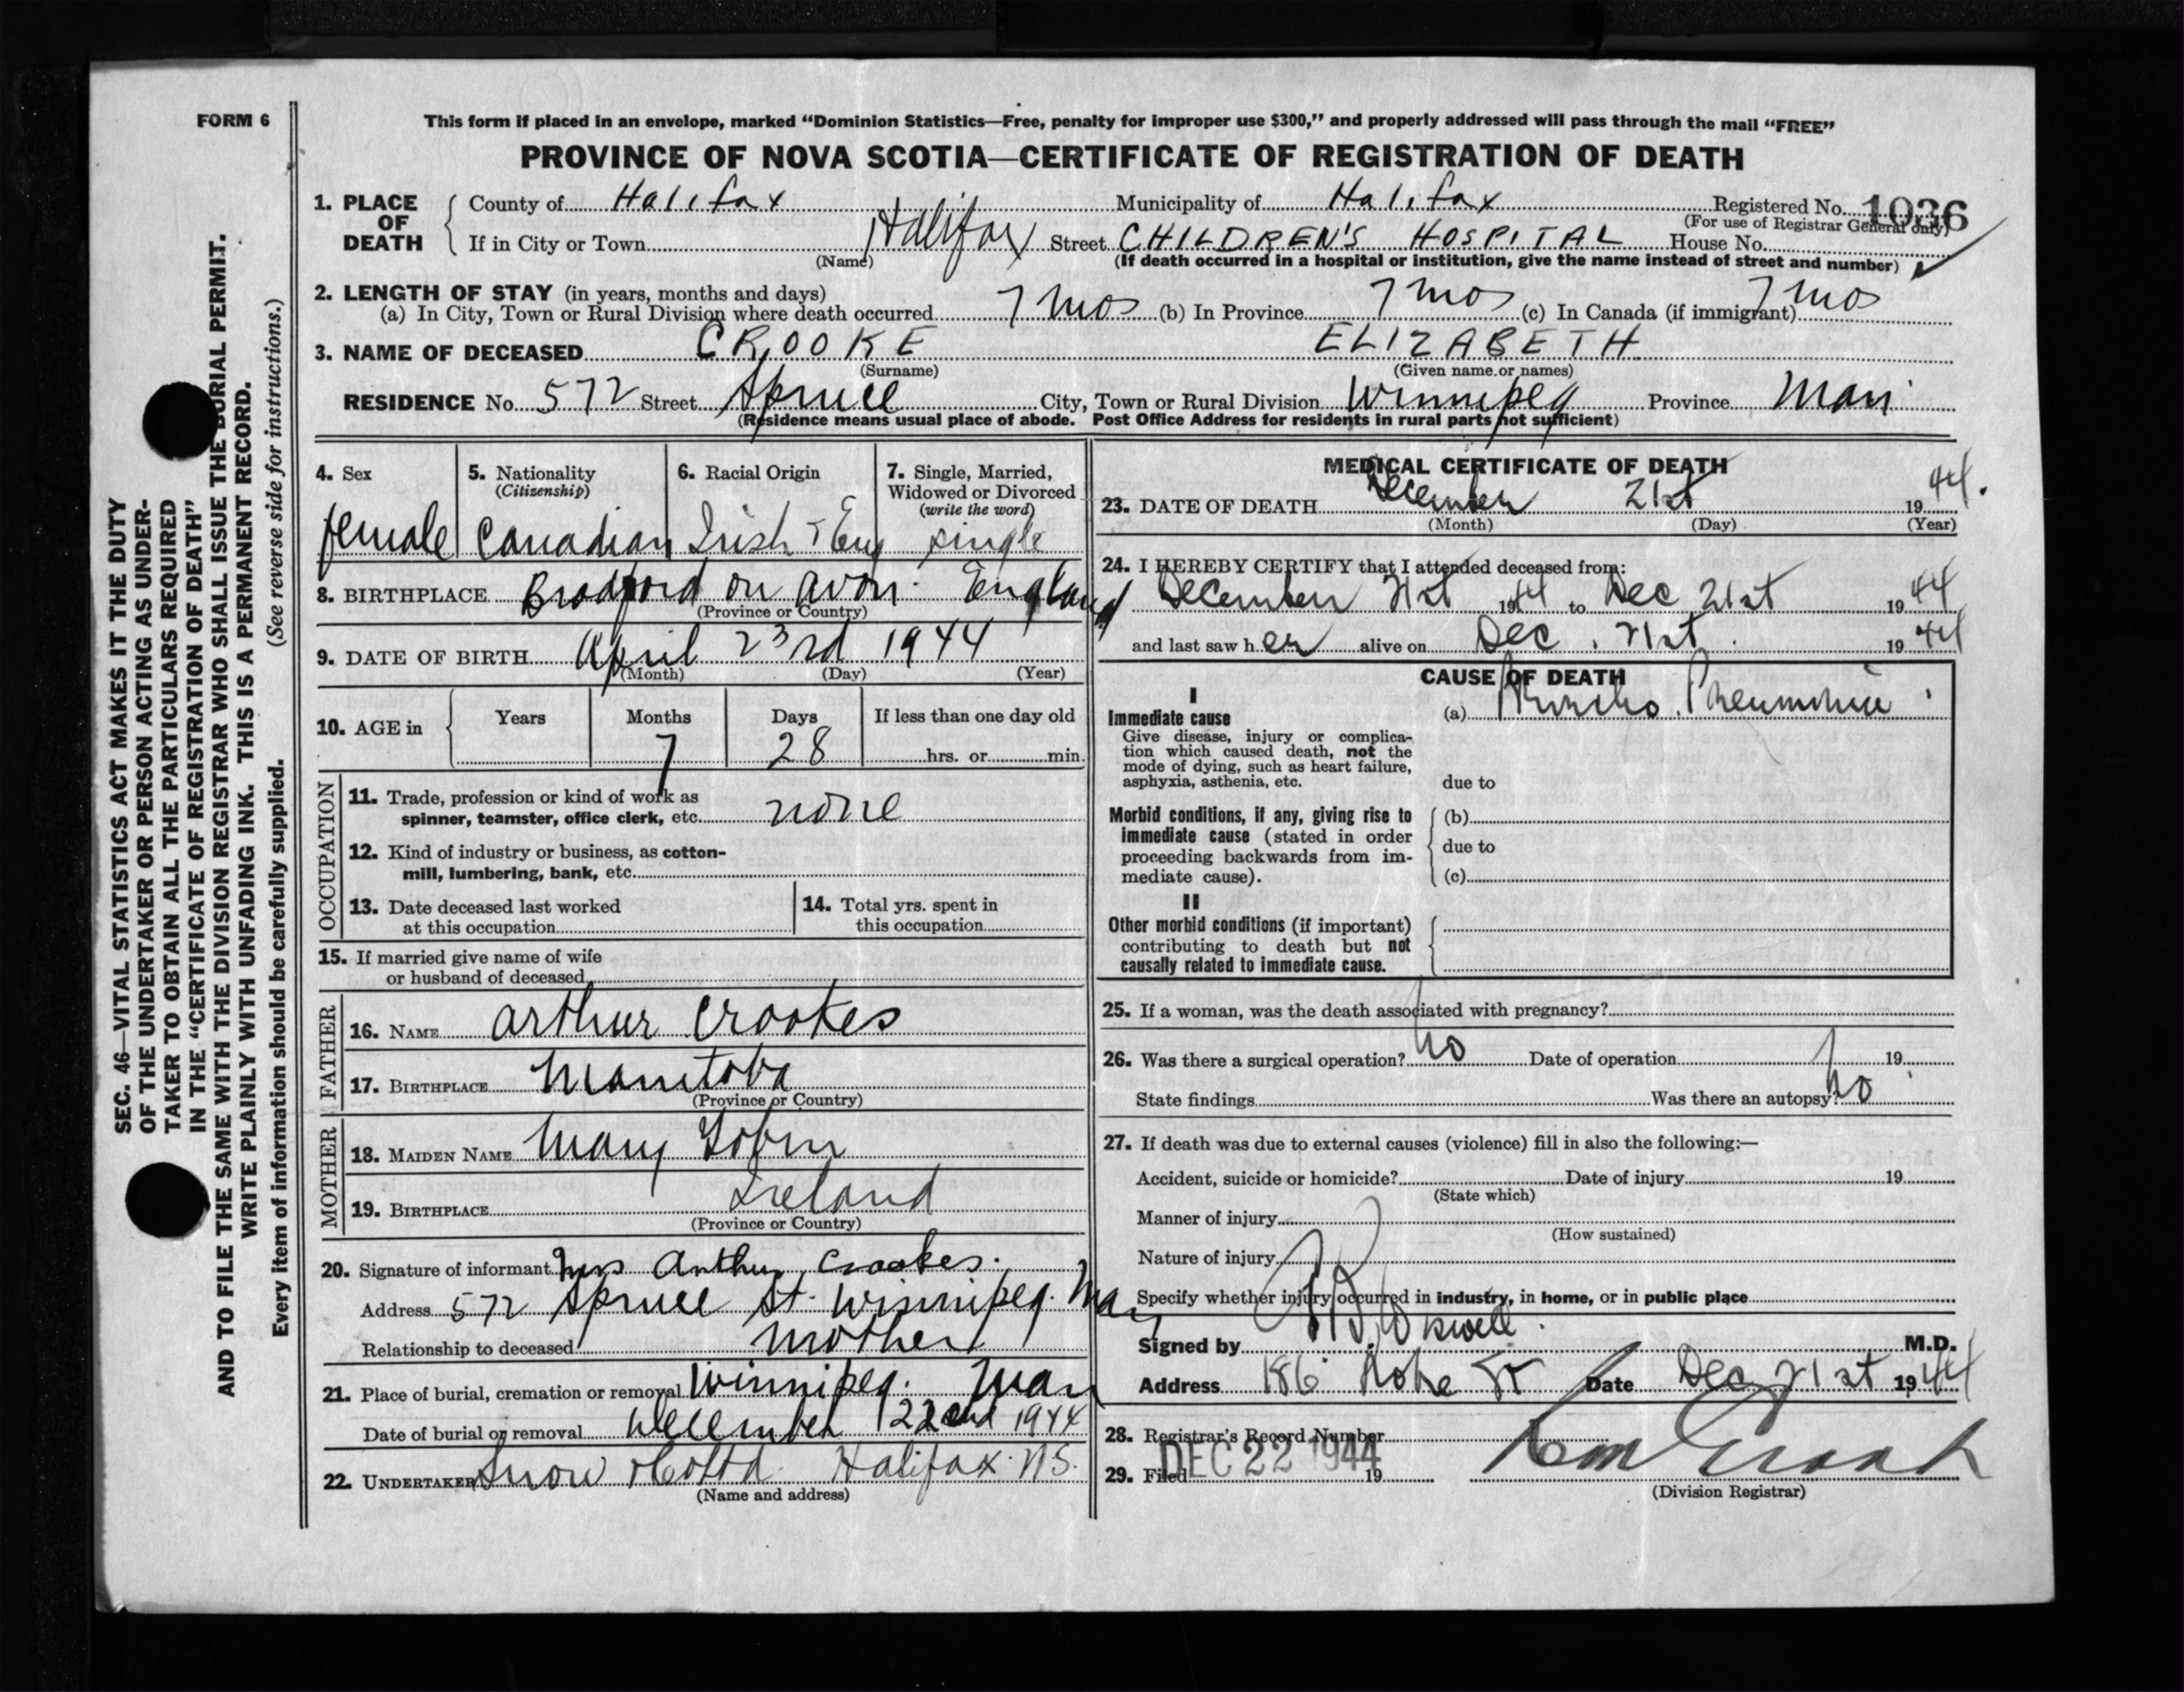 FORM 6
This form if placed in an envelope, marked “Dominion Statistics—Free, penalty for improper use $300,” and properly addressed will pass through the mail “FREE”
PROVINCE OF NOVA SCOTIA—CERTIFICATE OF REGISTRATION OF DEATH
1. PLACE OF DEATH County of Halifax Municipality of Halifax Registered No. 1036
(For use of Registrar General only)
If in City or Town Halifax Street CHILDREN'S HOSPITAL House No.
(Name) (If death occurred in a hospital or institution, give the name instead of street and number)
2. LENGTH OF STAY (in years, months and days)
(a) In City, Town or Rural Division where death occurred 7 mos (b) In Province 7 mos (c) In Canada (if immigrant) 7 mos
3. NAME OF DECEASED CROOKE ELIZABETH
(Surname) (Given name or names)
RESIDENCE No. 572 Street Spruce City, Town or Rural Division Winnipeg Province Man
(Residence means usual place of abode. Post Office Address for residents in rural parts not sufficient)
4. Sex 5. Nationality 6. Racial Origin 7. Single, Married,
(Citizenship) Widowed or Divorced
(write the word)
female Canadian Irish + Eng single
8. BIRTHPLACE Bradford on Avon England
(Province or Country)
9. DATE OF BIRTH April 23rd 1944
(Month) (Day) (Year)
10. AGE in Years Months Days If less than one day old
7 28 hrs. or min.
OCCUPATION
11. Trade, profession or kind of work as
spinner, teamster, office clerk, etc. none
12. Kind of industry or business, as cotton-
mill, lumbering, bank, etc.
13. Date deceased last worked 14. Total yrs. spent in
at this occupation this occupation
15. If married give name of wife
or husband of deceased
FATHER
16. NAME Arthur Crookes
17. BIRTHPLACE Manitoba
(Province or Country)
MOTHER
18. MAIDEN NAME Mary Tobin
19. BIRTHPLACE Ireland
(Province or Country)
20. Signature of informant Mrs Arthur Crookes.
Address 572 Spruce St. Winnipeg. Man
Relationship to deceased mother
21. Place of burial, cremation or removal Winnipeg. Man
Date of burial or removal December 22nd 1944
22. UNDERTAKER Snow & Co Ltd Halifax N.S.
(Name and address)
MEDICAL CERTIFICATE OF DEATH
23. DATE OF DEATH December 21st 1944.
(Month) (Day) (Year)
24. I HEREBY CERTIFY that I attended deceased from:
December 21st 1944 to Dec 21st 1944
and last saw her alive on Dec. 21st. 1944
CAUSE OF DEATH
I
Immediate cause (a) Broncho Pneumonia
Give disease, injury or complica-
tion which caused death, not the
mode of dying, such as heart failure,
asphyxia, asthenia, etc. due to
Morbid conditions, if any, giving rise to (b)
immediate cause (stated in order due to
proceeding backwards from im-
mediate cause). (c)
II
Other morbid conditions (if important)
contributing to death but not
causally related to immediate cause.
25. If a woman, was the death associated with pregnancy?
26. Was there a surgical operation? No Date of operation 19
State findings Was there an autopsy? No
27. If death was due to external causes (violence) fill in also the following:—
Accident, suicide or homicide? Date of injury 19
(State which)
Manner of injury
(How sustained)
Nature of injury
Specify whether injury occurred in industry, in home, or in public place
Signed by M.D.
Address 186 St Date Dec 21st 1944
28. Registrar's Record Number
29. Filed DEC 22 1944 19
(Division Registrar)
SEC. 46—VITAL STATISTICS ACT MAKES IT THE DUTY
OF THE UNDERTAKER OR PERSON ACTING AS UNDER-
TAKER TO OBTAIN ALL THE PARTICULARS REQUIRED
IN THE “CERTIFICATE OF REGISTRATION OF DEATH”
AND TO FILE THE SAME WITH THE DIVISION REGISTRAR WHO SHALL ISSUE THE BURIAL PERMIT.
WRITE PLAINLY WITH UNFADING INK. THIS IS A PERMANENT RECORD.
Every item of information should be carefully supplied. (See reverse side for instructions.)